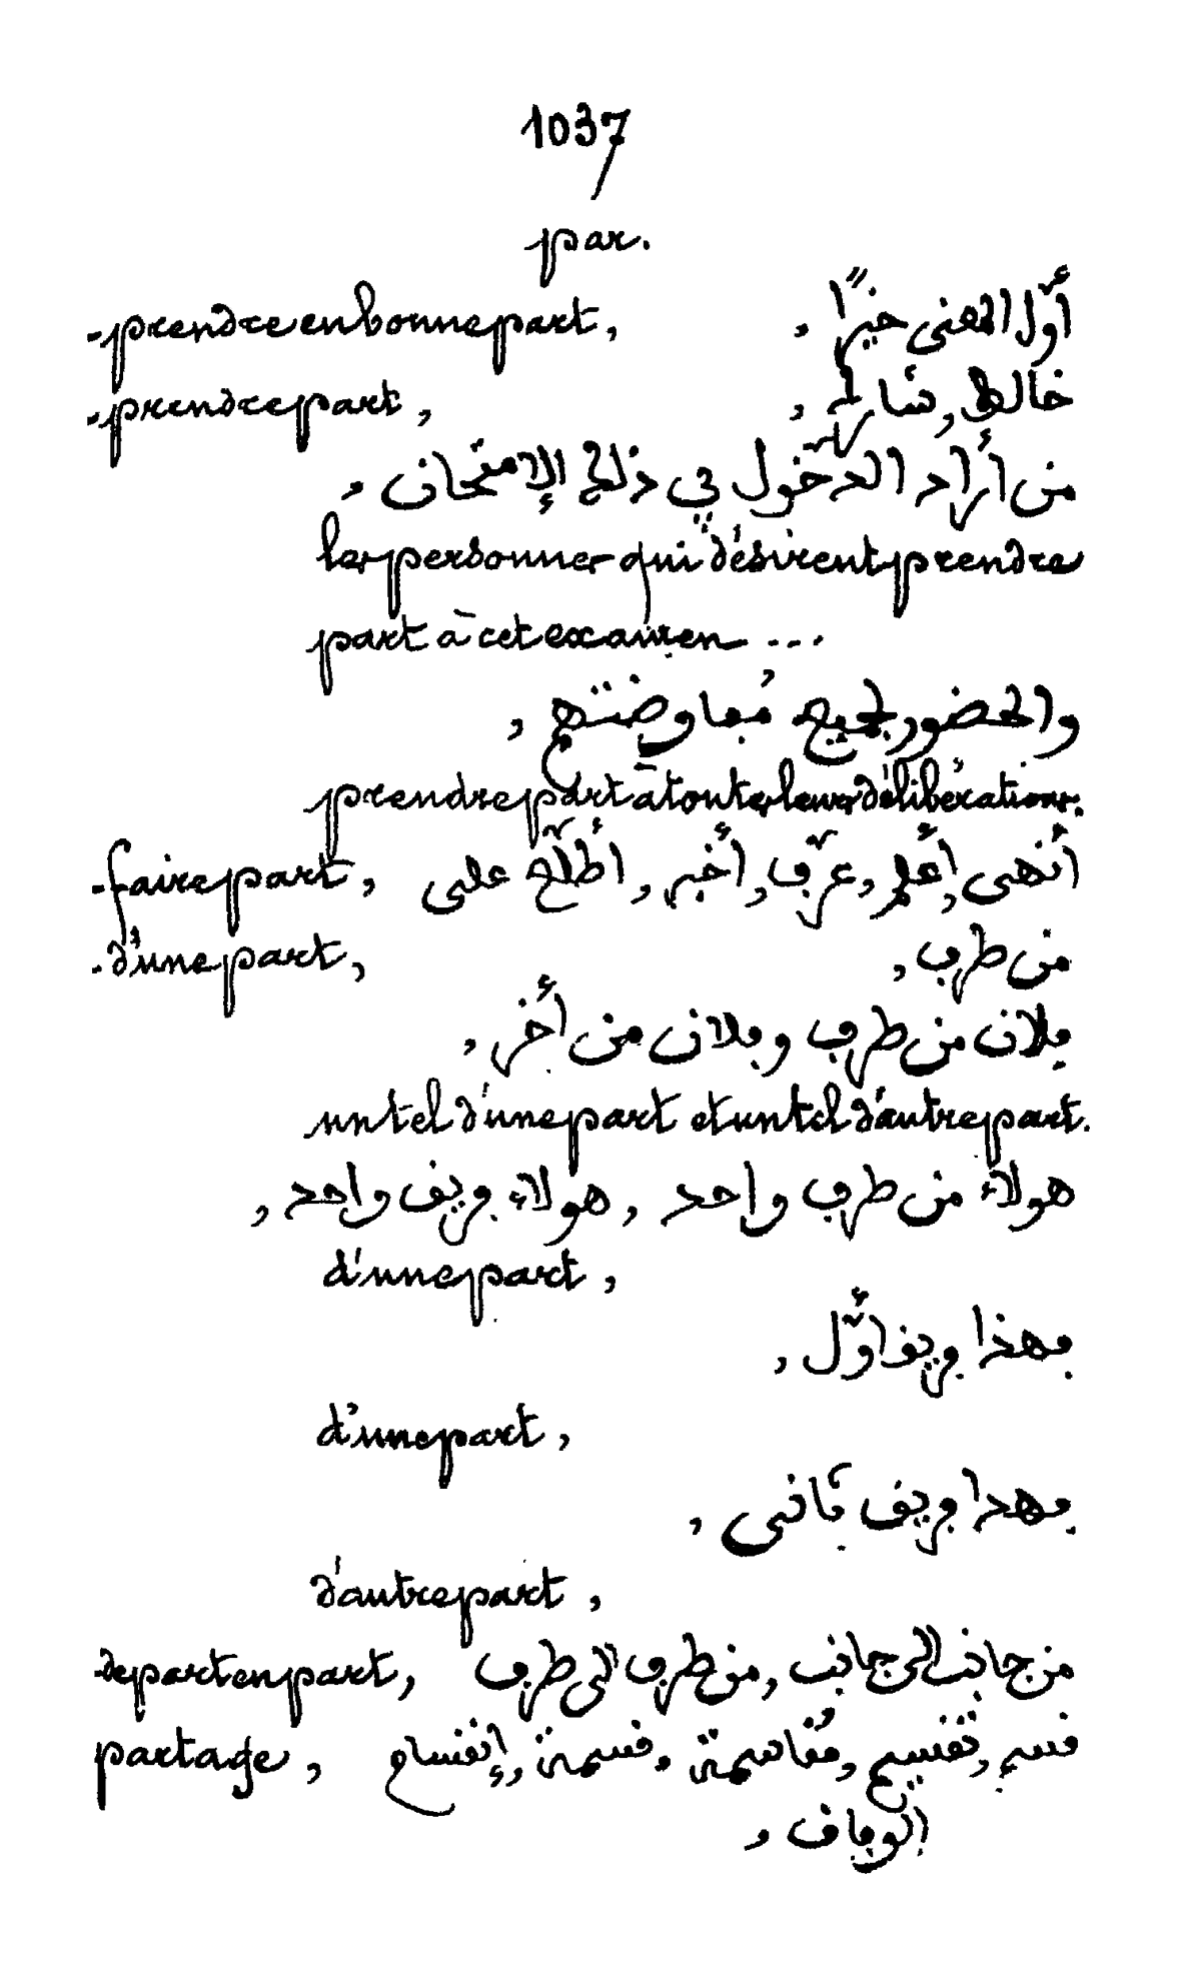 1037
par.
-prendre en bonne part, أَوَّل المعنى خيرًا ,
-prendre part, خالط, شارك ,
من أراد الدّخول في ذلك الإمتحان ,
les personnes qui désirent prendre
part à cet examen ...
والحضور لجميع مُفاوضتهم ,
prendre part à toutes leurs délibérations.
-faire part, أنهى, أعلم, عرّف, أخبر, أطلّع على
-d'une part, من طرف ,
فلان من طرف وفلان من أخر ,
un tel d'une part et un tel d'autre part.
هولاء من طرف واحد , هولاء فريق واحد ,
d'une part,
فهذا فريق أوّل ,
d'une part,
فهدا فريق ثانى ,
d'autre part,
-de part en part, من جانب الى جانب, من طرف الى طرف
partage, قسم, تقسيم, مُقاسمة, قسمة, إنقسام
الوفاق ,